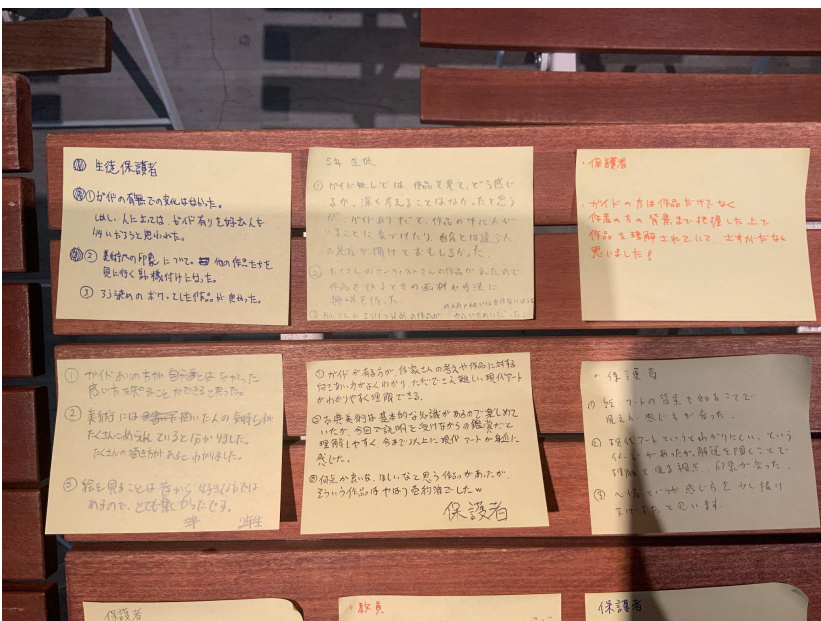 生徒保護者
①ガイドの有無での変化はなかった。
しかし、人によっては、ガイド有りを好む人も
多いだろうと思われた。
② 美術への印象について。他の作品たちを
見に行く動機付けになった。
③ ろう染めのボワッとした作品が良かった。
5年 生徒
① ガイド無しでは、作品を見て、どう感じ
るか、深く考えることはなかったと思う
が、ガイドありだと、作品の中に人が
いることに気づけたり、自分とは違う人
の見方が聞けておもしろかった。
② たくさんのアーティストさんの作品が
作品を作るときの画材や手法に
興味を持った。
③
・保護者
・ガイドの方は作品だけでなく
作者の方の背景まで把握した上で
作品を理解されていて、さすがだなと
思いました!
① ガイドありの方が自分とはちがった
感じ方を知ることができると思った。
② 美術には描いた人の気持ちが
たくさんこめられていると分かりました。
たくさんの描き方があるとわかりました。
③ 絵を見ることは昔から好きなほうでは
あるので、とても楽しかったです。
2年生
① ガイドが有る方が、作家さんの考えや作品に対する
向き合い方がよくわかり、ただでさえ難しい現代アート
がわかりやすく理解できる。
② 古典美術は基本的な知識があるので楽しめて
いたが、今回で説明を受けながらの鑑賞だと
理解しやすく、今まで以上に現代アートが身近に
感じた。
③ 何点か良いな、ほしいなと思う作品があったが、
そういう作品はやはり売約済でした w
保護者
・保護者
① 絵・アートの背景を知ることで
見え方・感じ方が変った。
② 現代アートというとわかりにくい、という
イメージがあったが、解説を頂くことで
理解と見る視点、印象が変った。
③
保護者
・教員
保護者